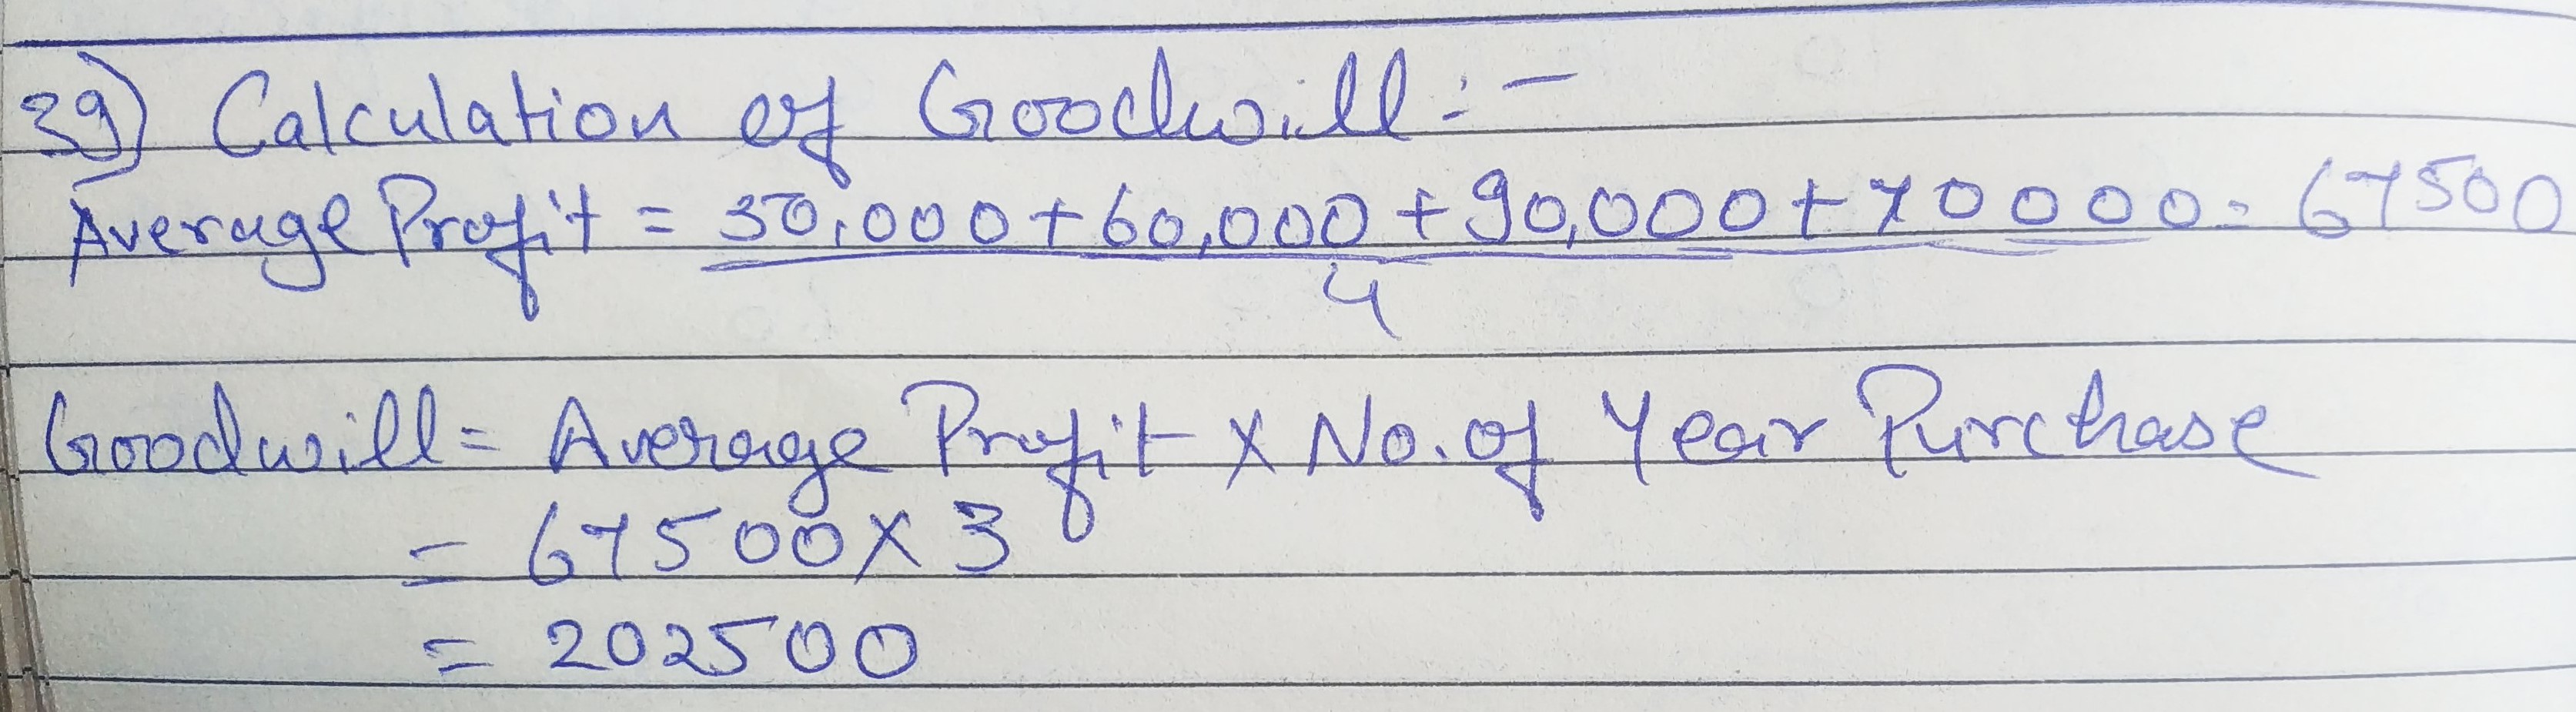 39) Calculation of Goodwill :-
Average Profit = 50,000 + 60,000 + 90,000 + 70000 = 67500
4
Goodwill = Average Profit X No. of Year Purchase
= 67500 X 3
= 202500